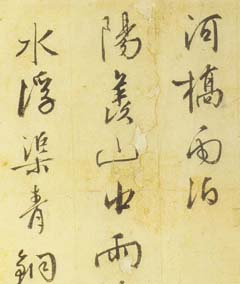 河橋雨泊
陽羨山中雨
水浮渠青銅